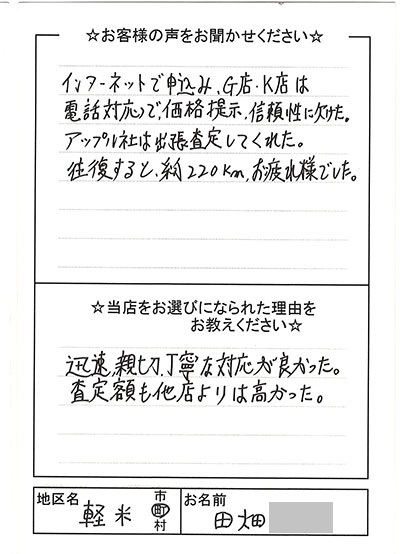 ☆お客様の声をお聞かせください☆
インターネットで申込み、G店・K店は
電話対応で、価格提示、信頼性に欠けた。
アップル社は出張査定してくれた。
往復すると、約220km、お疲れ様でした。
☆当店をお選びになられた理由を
お教えください☆
迅速、親切、丁寧な対応が良かった。
査定額も他店よりは高かった。
地区名
軽米
市
町
村
お名前
田畑